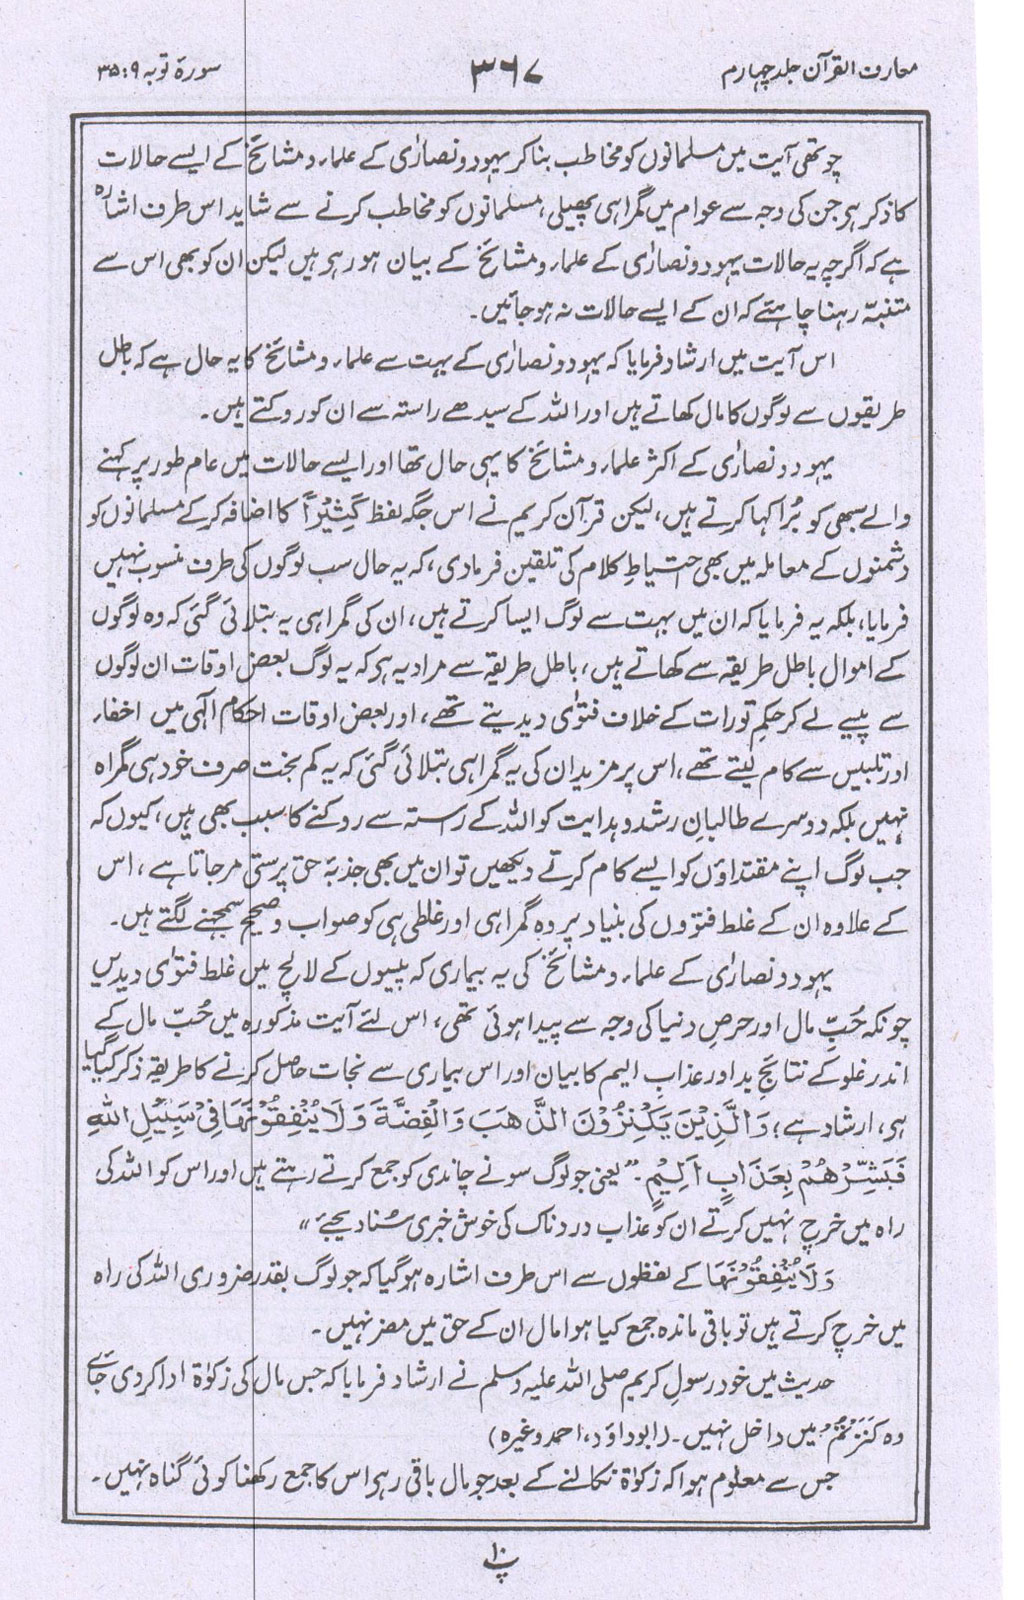 معارف القرآن جلد چہارم ۳۶۷ سورۂ توبہ ۹:۳۵
چوتھی آیت میں مسلمانوں کو مخاطب بنا کر یہود و نصارٰی کے علماء و مشائخ کے ایسے حالات
کا ذکر ہر جن کی وجہ سے عوام میں گمراہی پھیلی، مسلمانوں کو مخاطب کرنے سے شاید اس طرف اشارہ
ہے کہ اگرچہ یہ حالات یہود و نصارٰی کے علماء و مشائخ کے بیان ہو رہر ہیں لیکن ان کو بھی اس سے
متنبہّ رہنا چاہئے کہ ان کے ایسے حالات نہ ہو جائیں۔
اس آیت میں ارشاد فرمایا کہ یہود و نصارٰی کے بہت سے علماء و مشائخ کا یہ حال ہے کہ باطل
طریقوں سے لوگوں کا مال کھاتے ہیں اور اللہ کے سیدھے راستہ سے ان کو روکتے ہیں۔
یہود و نصارٰی کے اکثر علماء و مشائخ کا یہی حال تھا اور ایسے حالات میں عام طور پر کہنے
والے سبھی کو بُرا کہا کرتے ہیں، لیکن قرآن کریم نے اس جگہ لفظ کَثِیْرًا کا اضافہ کر کے مسلمانوں کو
دشمنوں کے معاملہ میں بھی احتیاطِ کلام کی تلقین فرمادی، کہ یہ حال سب لوگوں کی طرف منسوب نہیں
فرمایا، بلکہ یہ فرمایا کہ ان میں بہت سے لوگ ایسا کرتے ہیں، ان کی گمراہی یہ بتلائی گئی کہ وہ لوگوں
کے اموال باطل طریقہ سے کھاتے ہیں، باطل طریقہ سے مراد یہ ہر کہ یہ لوگ بعض اوقات ان لوگوں
سے پیسے لے کر حکمِ تورات کے خلاف فتوٰی دیدیتے تھے، اور بعض اوقات احکام الٰہی میں اخفاء
اور تلبیس سے کام لیتے تھے، اس پر مزید ان کی یہ گمراہی بتلائی گئی کہ یہ کم بخت صرف خود ہی گمراہ
نہیں بلکہ دوسرے طالبانِ رشد و ہدایت کو اللہ کے رستہ سے روکنے کا سبب بھی ہیں، کیوں کہ
جب لوگ اپنے مقتداؤں کو ایسے کام کرتے دیکھیں تو ان میں بھی جذبۂ حق پرستی مر جاتا ہے، اس
کے علاوہ ان کے غلط فتووں کی بنیاد پر وہ گمراہی اور غلطی ہی کو صواب و صحیح سمجھنے لگتے ہیں۔
یہود و نصارٰی کے علماء و مشائخ کی یہ بیماری کہ پیسوں کے لالچ میں غلط فتوٰی دیدیں
چونکہ حُبِّ مال اور حرصِ دنیا کی وجہ سے پیدا ہوئی تھی، اس لئے آیت مذکورہ میں حُبِّ مال کے
اندر غلو کے نتائجِ بد اور عذابِ الیم کا بیان اور اس بیماری سے نجات حاصل کرنے کا طریقہ ذکر کیا گیا
ہر، ارشاد ہے؛ وَالَّذِیْنَ یَکْنِزُوْنَ الذَّھَبَ وَالْفِضَّۃَ وَلَا یُنْفِقُوْنَھَا فِیْ سَبِیْلِ اللّٰہِ
فَبَشِّرْھُمْ بِعَذَابٍ اَلِیْمٍ۔ ”یعنی جو لوگ سونے چاندی کو جمع کرتے رہتے ہیں اور اس کو اللہ کی
راہ میں خرچ نہیں کرتے ان کو عذاب دردناک کی خوش خبری سُنا دیجئے“
وَلَا یُنْفِقُوْنَھَا کے لفظوں سے اس طرف اشارہ ہو گیا کہ جو لوگ بقدر ضروری اللہ کی راہ
میں خرچ کرتے ہیں تو باقی ماندہ جمع کیا ہوا مال ان کے حق میں مضر نہیں۔
حدیث میں خود رسولِ کریم صلی اللہ علیہ وسلم نے ارشاد فرمایا کہ جس مال کی زکوٰۃ ادا کر دی جائے
وہ کَنَزْتُمْ میں داخل نہیں۔ (ابوداؤد، احمد وغیرہ)
جس سے معلوم ہوا کہ زکوٰۃ نکالنے کے بعد جو مال باقی رہر اس کا جمع رکھنا کوئی گناہ نہیں۔
پ۱۰